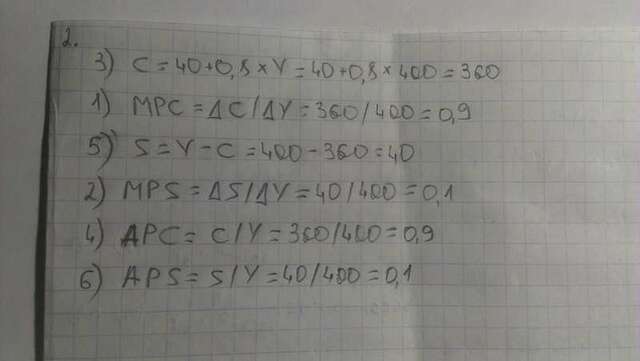 2.
3) C = 40+0,8×Y = 40+0,8×400 = 360
1) MPC = ΔC/ΔY = 360/400 = 0,9
5) S = Y-C = 400-360 = 40
2) MPS = ΔS/ΔY = 40/400 = 0,1
4) APC = C/Y = 360/400 = 0,9
6) APS = S/Y = 40/400 = 0,1